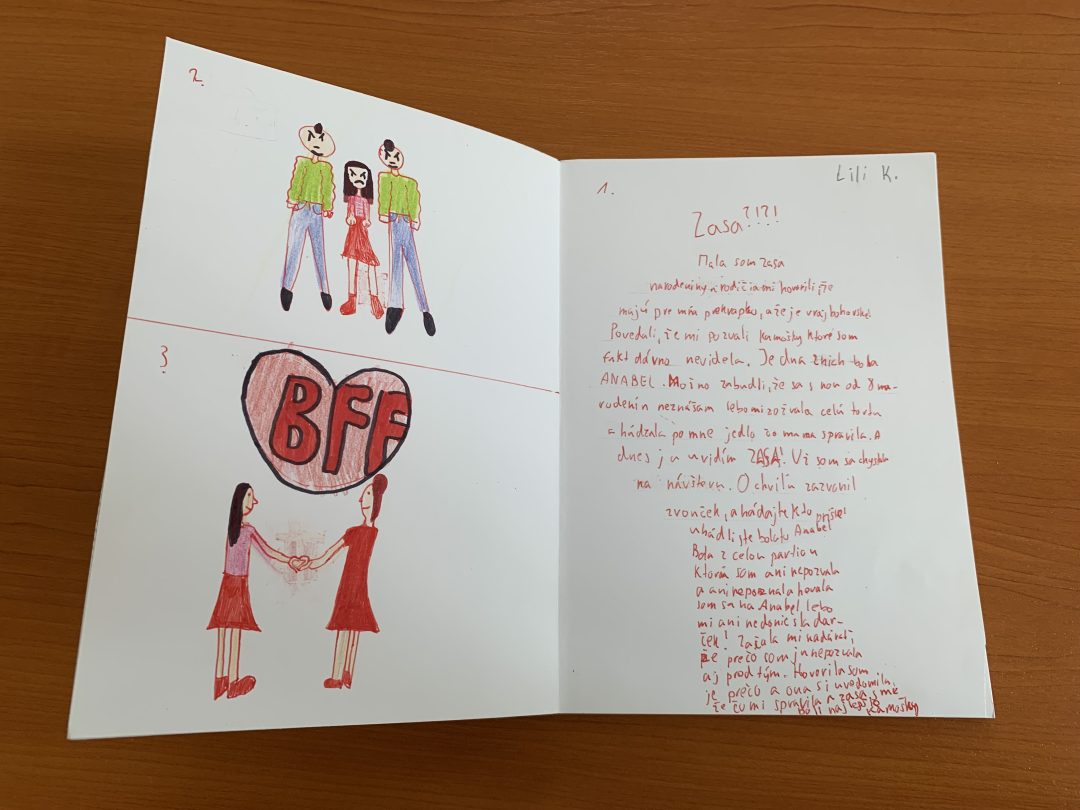 2.
3
BFF
Lili K.
1.
Zasa?!?!
Mala som zasa
narodeniny a rodičia mi hovorili, že
majú pre mňa prekvapko, a že je vraj bohovské!
Povedali, že mi pozvali kamošky ktoré som
fakt dávno nevidela. Jedna z nich bola
ANABEL. Možno zabudli, že sa s ňou od 8 na-
rodenín neznášam lebo mi zožrala celú tortu
a hádzala po mne jedlo čo mama spravila. A
dnes ju uvidím ZASA! Už som sa chystala
na návštevu. O chvíľu zazvonil
zvonček, a hádajte kto prišiel!
uhádli ste bola to Anabel
Bola z celou partiou
ktorú som ani nepozvala
a ani nepoznala hovala
som sa na Anabel lebo
mi ani nedoniesla dar-
ček! Začala mi nadávať,
že prečo som ju nepozvala
aj pred tým. Hovorila som
je prečo a ona si uvedomila,
že čo mi spravila a zasa sme
boli najlepšie kamošky